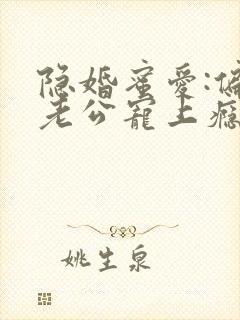 隐婚蜜爱:偏
老公寵上瘾
姚生泉